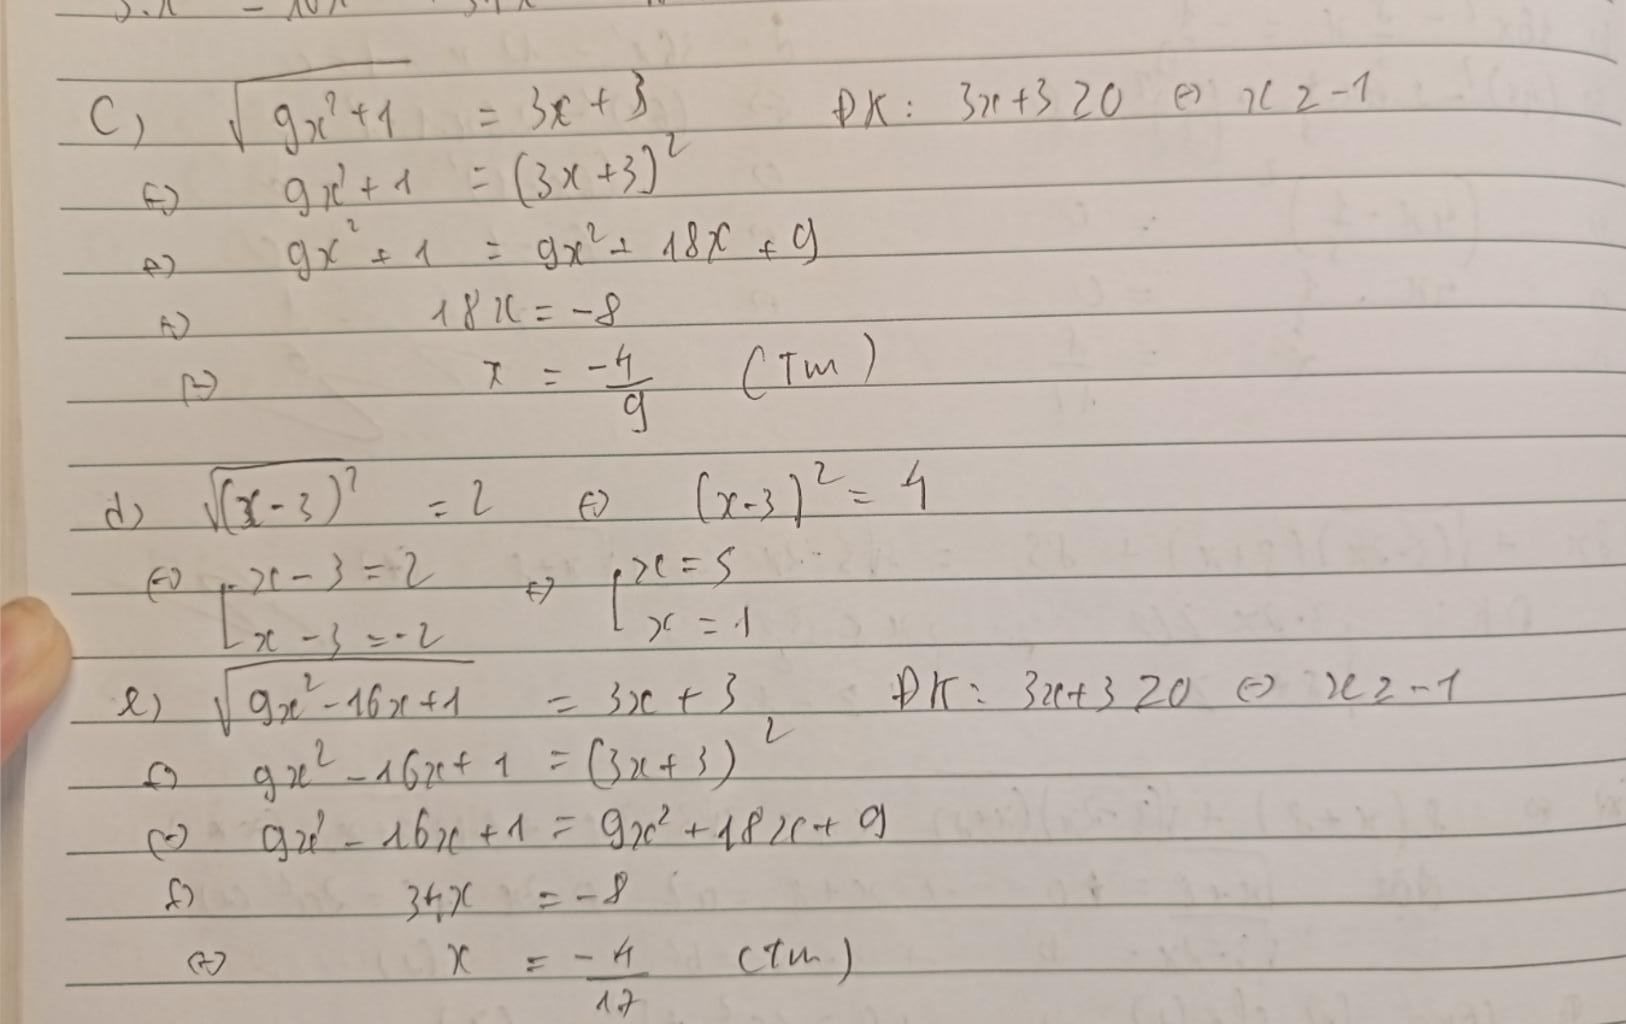 c) √(9x²+1) = 3x+3 ĐK: 3x+3≥0 ⇔ x≥-1
⇔ 9x²+1 = (3x+3)²
⇔ 9x²+1 = 9x²+18x+9
⇔ 18x = -8
⇔ x = -4/9 (Tm)
d) √(x-3)² = 2 ⇔ (x-3)² = 4
⇔ [x-3=2 ⇔ [x=5
x-3=-2 x=1
e) √(9x²-16x+1) = 3x+3 ĐK: 3x+3≥0 ⇔ x≥-1
⇔ 9x²-16x+1 = (3x+3)²
⇔ 9x²-16x+1 = 9x²+18x+9
⇔ 34x = -8
⇔ x = -4/17 (tm)